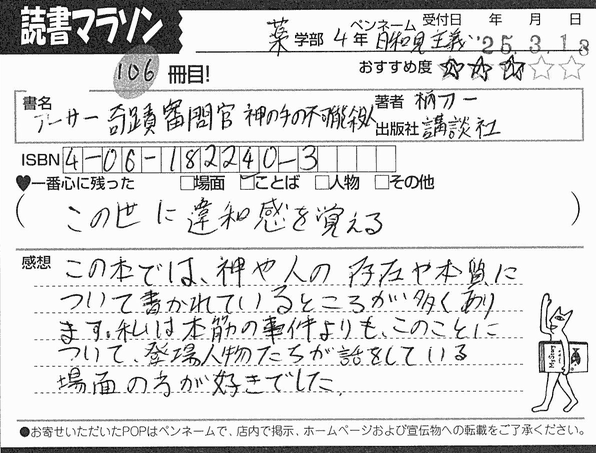 読書マラソン
薬 学部 4 年 ペンネーム 日和見主義 受付日 年 月 日 '25.3.18
106 冊目!
おすすめ度 ★★★☆☆
書名 アーサー 奇蹟審問官 神の手の不可能殺人
著者 柄刀一
出版社 講談社
ISBN 4-06-182240-3
♥一番心に残った □場面 □ことば □人物 □その他
( この世に違和感を覚える )
感想 この本では、神や人の 存在や本質に
ついて書かれているところが多くあり
ます。私は本筋の事件よりも、このことに
ついて、登場人物たちが話をしている
場面の方が好きでした。
●お寄せいただいたPOPはペンネームで、店内で掲示、ホームページおよび宣伝物への転載をご了承ください。